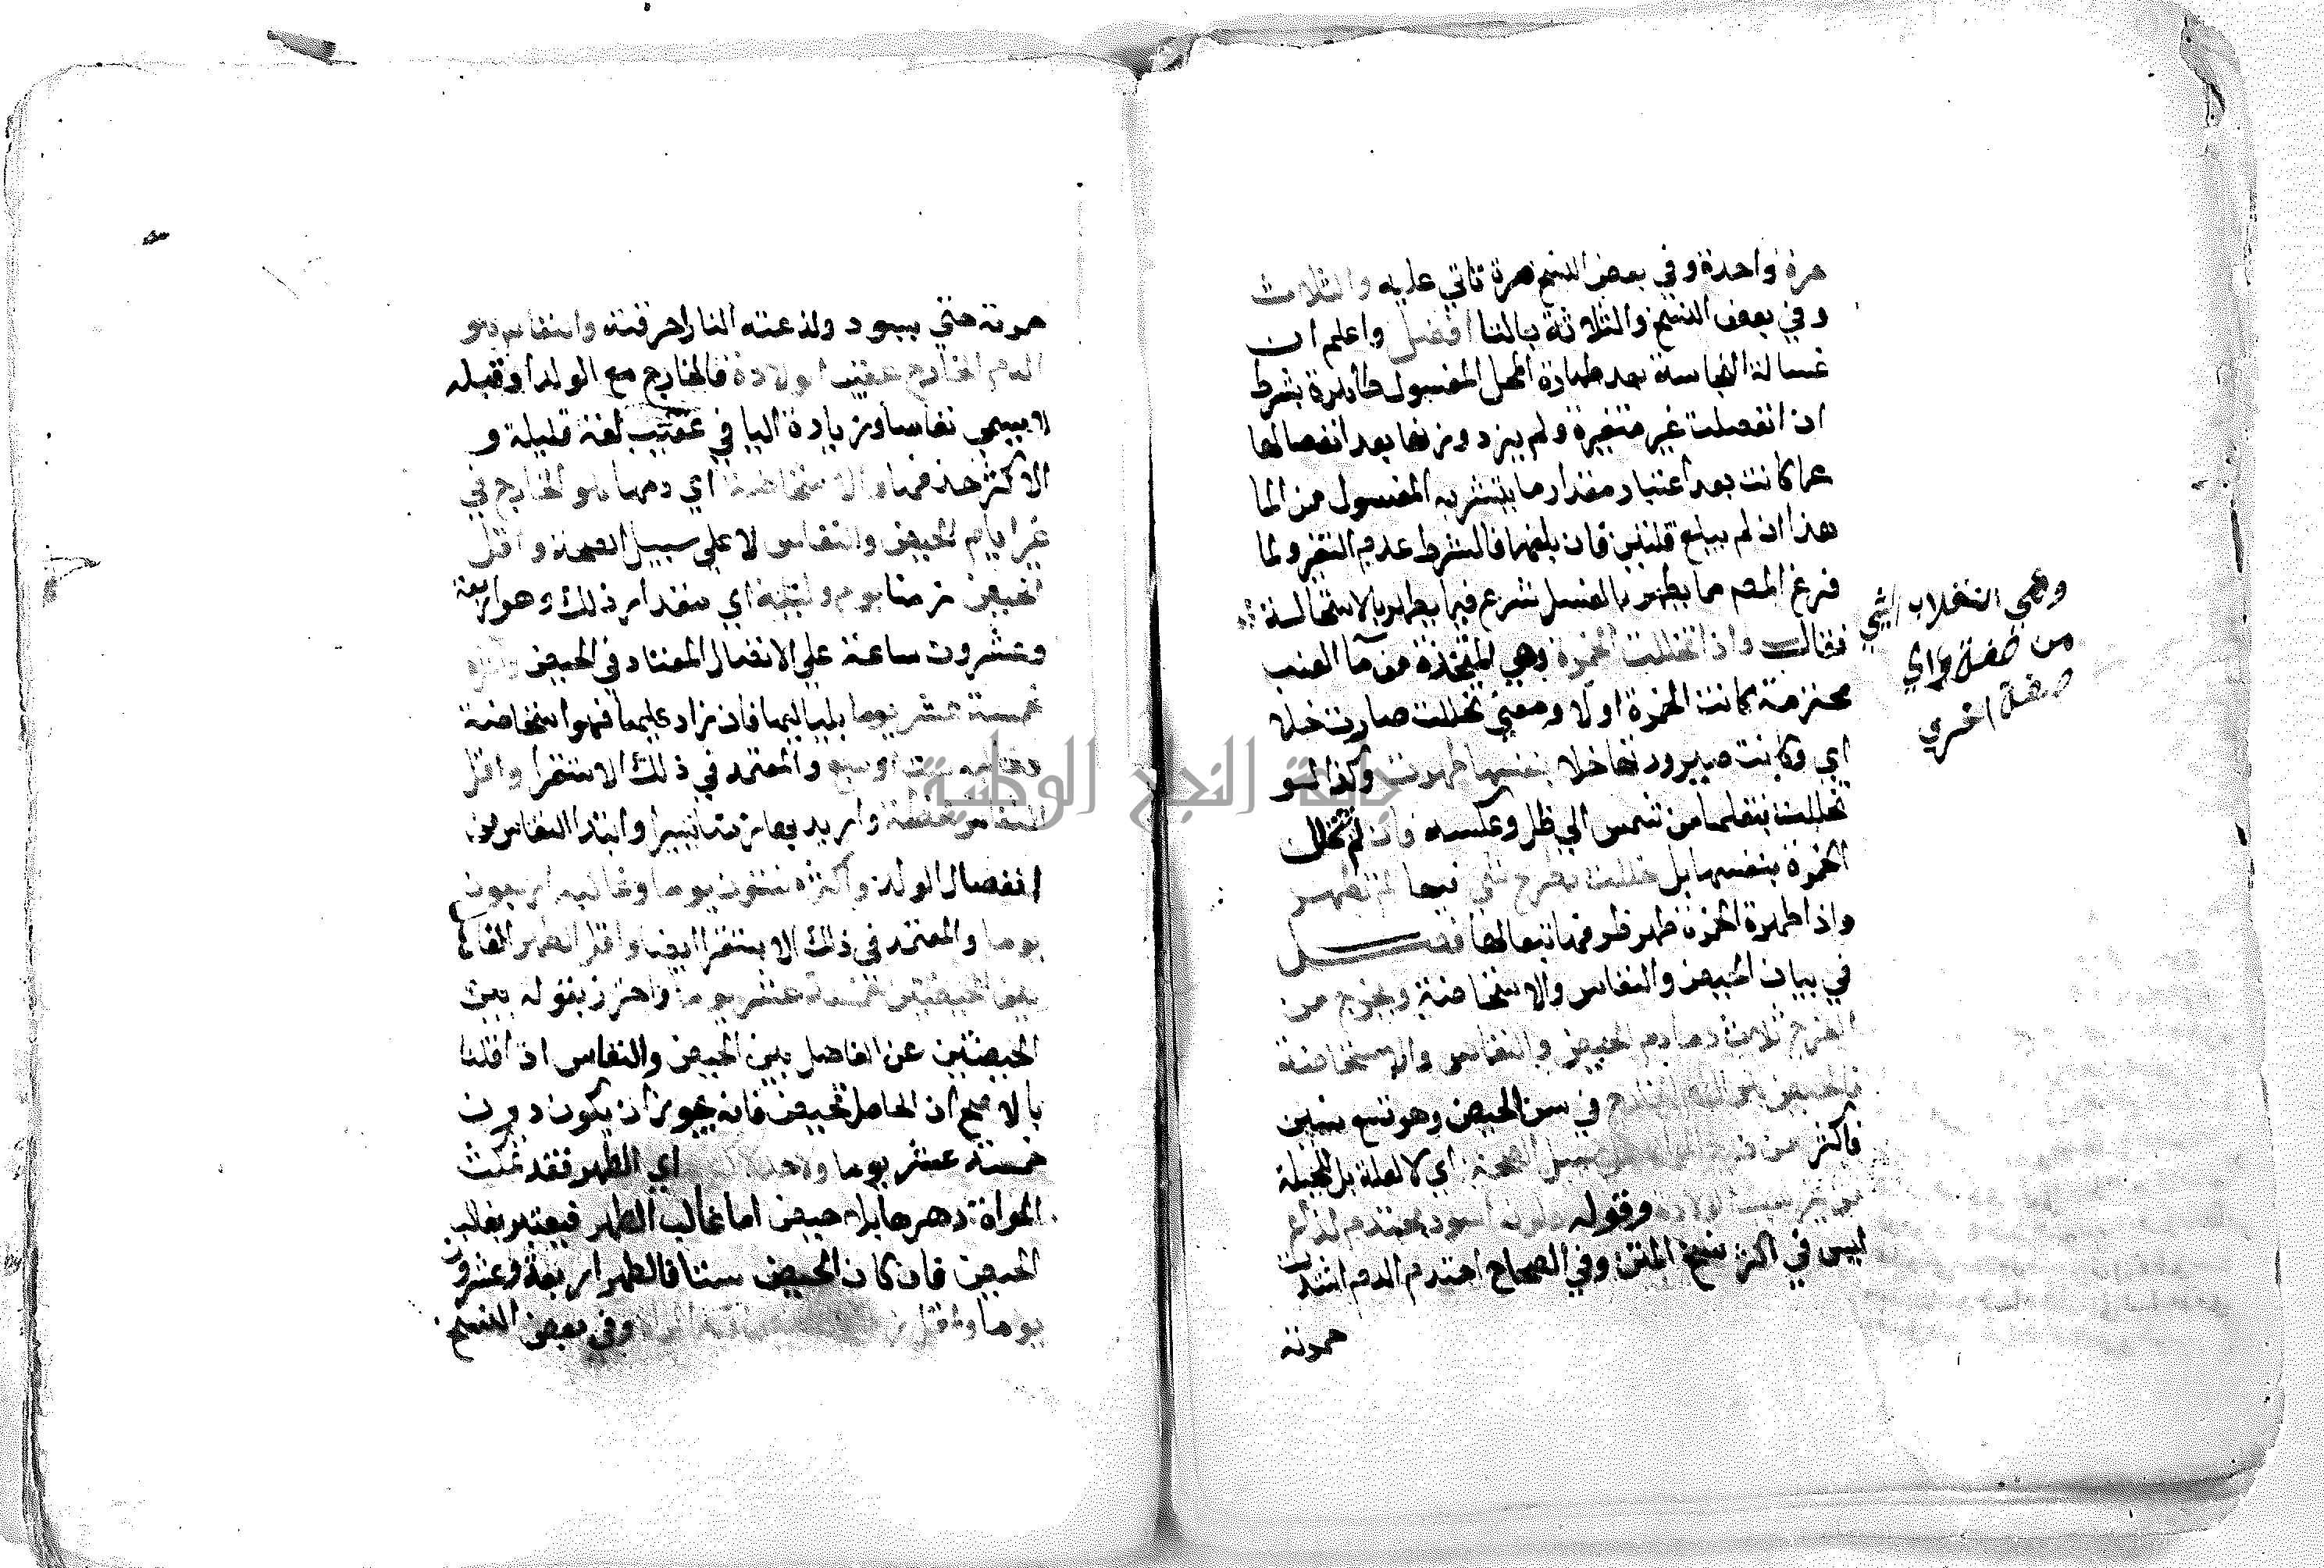 مرة واحدة وفي بعض النسخ مرة تاتي عليه والثلاث
وفي بعض النسخ والثلاثة بالتا افضل واعلم ان
غسالة النجاسة بعد طهارة المحل المغسول طاهرة بشرط
ان انفصلت غير متغيرة ولم يزد وزنها بعد انفصالها
عما كانت بعد اعتبار مقدار ما يتشربه المغسول من الما
هذا ان لم يبلغ قلتين فان بلغهما فالشرط عدم التغير ولما
فرغ المصـ مما يطهر بالغسل شرع فيما يطهر بالاستحالة
وهي انقلاب الشي
من صفة الي
صفة اخري
فقال واذا تخللت الخمرة وهي المتخذة من ما العنب
محترمة كانت الخمرة اولا ومعني تخللت صارت خلا
اي وكانت صيرورتها خلا بنفسها طهرت وكذا لو
تخللت بنقلها من شمس الي ظل وعكسه وان لم تخلل
الخمرة بنفسها بل خللت بطرح شي فيها لم تطهر
واذا طهرة الخمرة طهر ظرفها تبعا لها فصل
في بيان الحيض والنفاس والاستحاضة ويخرج من
الفرج ثلاث دما دم الحيض والنفاس والاستحاضة
فالحيض هو الدم الخارج في سن الحيض وهو تسع سنين
فاكثر من فرج المراة علي سبيل الصحة اي لا لعلة بل للجبلة
من غير سبب الولادة وقوله ولونه اسود محتدم لذاع
ليس في اكثر نسخ المتن وفي الصحاح احتدم الدم اشتدت
حمرته
حمرته حتي يسود ولذعته النار احرقته والنفاس هو
الدم الخارج عقيب الولادة فالخارج مع الولد او قبله
لا يسمي نفاسا وزيادة اليا في عقيب لغة قليلة و
الاكثر حذفها والاستحاضة اي دمها هو الخارج في
غير ايام الحيض والنفاس لا علي سبيل الصحة واقل
الحيض زمنا يوم وليلة اي مقدار ذلك وهو اربعة
وعشرون ساعة علي الاتصال المعتاد في الحيض واكثره
خمسة عشر يوما بلياليها فان زاد عليها فهو استحاضة
وغالبه ست او سبع والمعتمد في ذلك الاستقرا واقل
النفاس لحظة واريد بها زمنا يسيرا وابتدا النفاس من
انفصال الولد واكثره ستون يوما وغالبه اربعون
يوما والمعتمد في ذلك الاستقرا ايضا واقل الطهر الفاصل
بين الحيضتين خمسة عشر يوما واحترز بقوله بين
الحيضتين عن الفاصل بين الحيض والنفاس اذا قلنا
بالاصح ان الحامل تحيض فانه يجوز ان يكون دون
خمسة عشر يوما ولا حد لاكثره اي الطهر فقد تمكث
المراة دهرها بلا حيض اما غالب الطهر فيعتبر بغالب
الحيض فان كان الحيض ستا فالطهر اربعة وعشرون
يوما واقل زمن تحيض فيه المراة وفي بعض النسخ